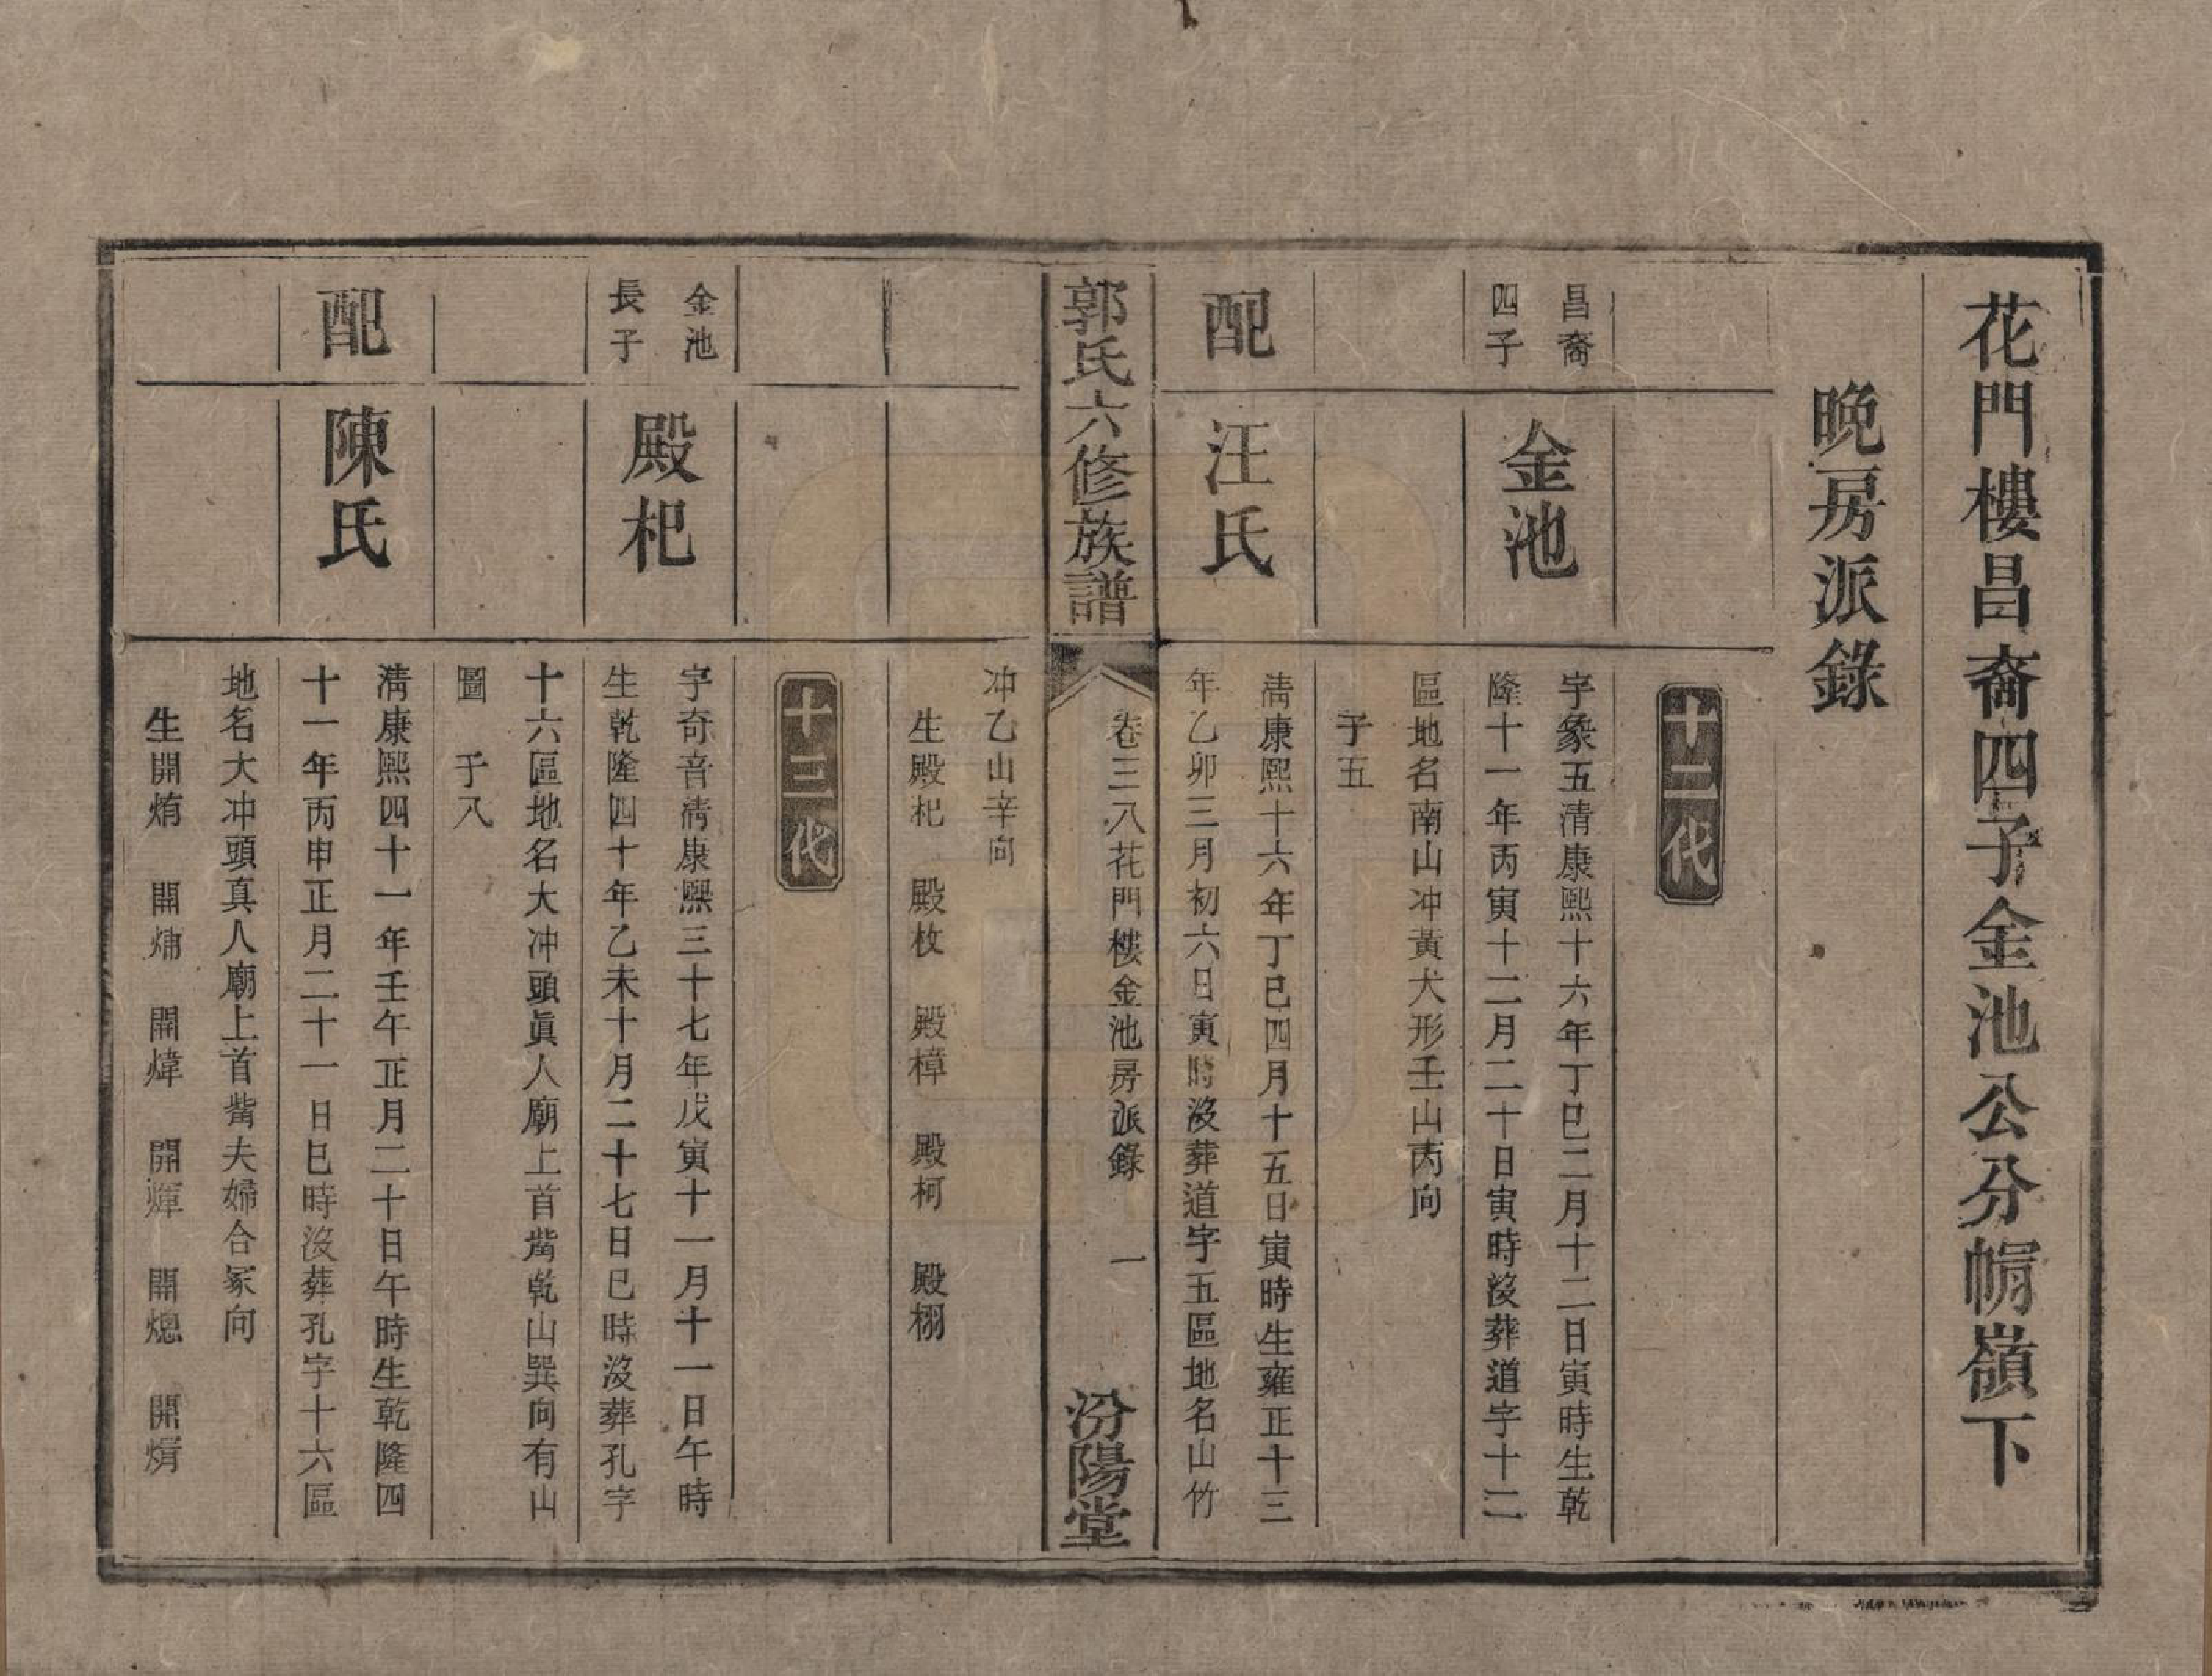 花門樓昌裔四子金池公分嶺下
晚房派錄
十二代
昌裔
四子
金池
字象五清康熙十六年丁巳二月十二日寅時生乾
隆十一年丙寅十二月二十日寅時沒葬道字十二
區地名南山冲黃犬形壬山丙向
子五
配
汪氏
清康熙十六年丁巳四月十五日寅時生雍正十三
年乙卯三月初六日寅時沒葬道字五區地名山竹
郭氏六修族譜
卷三八花門樓金池房派錄
一
汾陽堂
冲乙山辛向
生殿杞 殿枚 殿樟 殿柯 殿栩
十三代
金池
長子
殿杞
字奇音清康熙三十七年戊寅十一月十一日午時
生乾隆四十年乙未十月二十七日巳時沒葬孔字
十六區地名大冲頭眞人廟上首嘴乾山巽向有山
圖 子八
配
陳氏
清康熙四十一年壬午正月二十日午時生乾隆四
十一年丙申正月二十一日巳時沒葬孔字十六區
地名大冲頭真人廟上首嘴夫婦合冢向
生開烠 開㶻 開煒 開煇 開熜 開焴